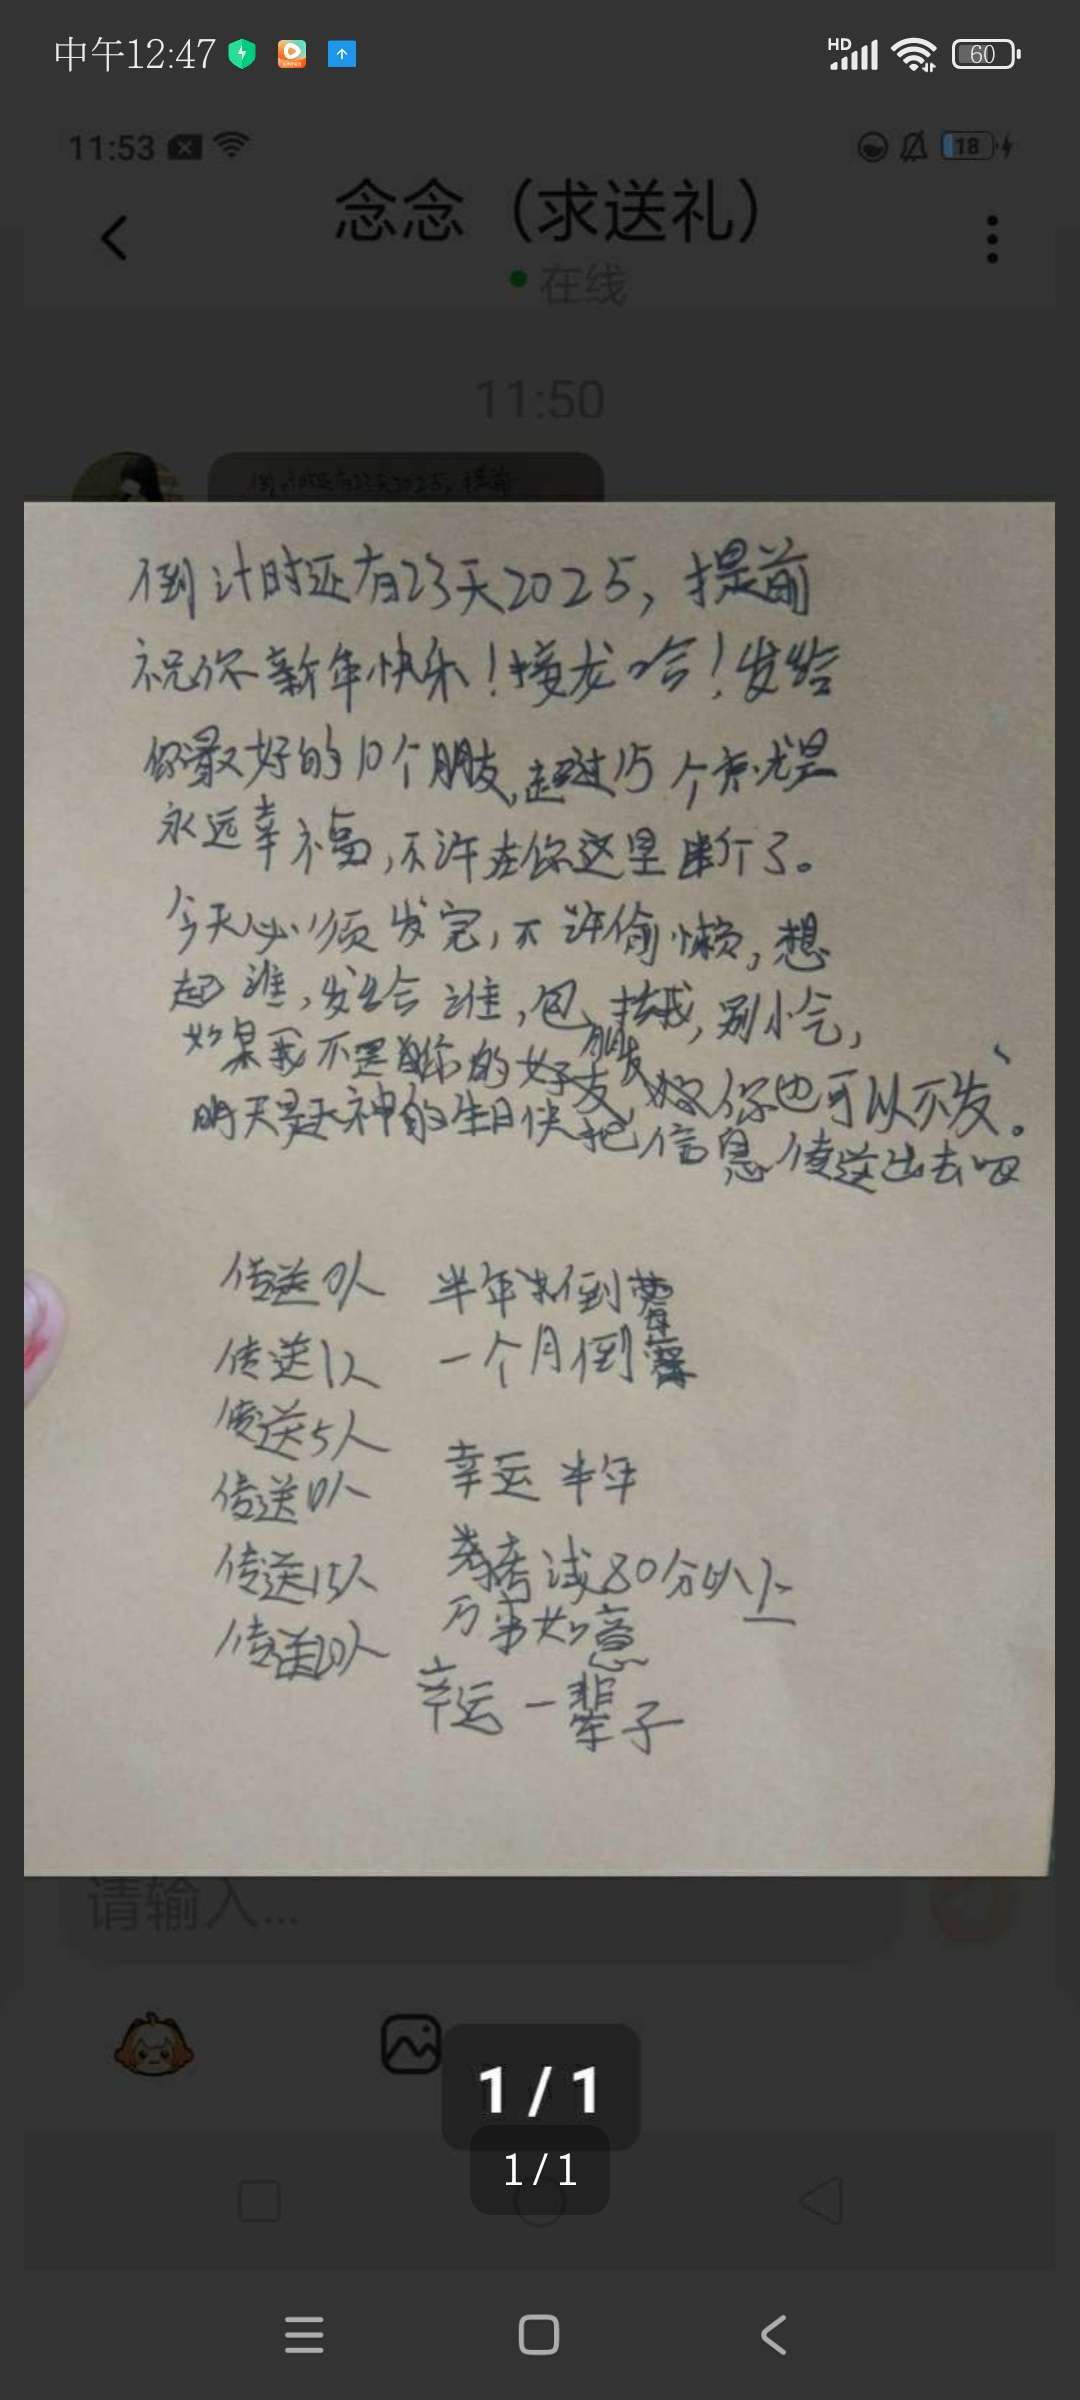 中午12:47
HD
60
11:53
18
念念（求送礼）
在线
11:50
倒计时还有23天2025，提前
倒计时还有23天2025，提前
祝你新年快乐！接龙哈！发给
你最好的10个朋友，超过15个就是
永远幸福，不许在你这里断了。
今天必须发完，不许偷懒，想
起谁，发给谁，包括我，别小气，
如果我不是你的好朋友，你也可以不发。
明天是天神的生日快把信息传送出去吧
传送0人 半年倒霉
传送1人 一个月倒霉
传送5人
幸运半年
传送10人
传送15人 考试80分以上
万事如意
传送20人
幸运一辈子
请输入...
1/1
1/1